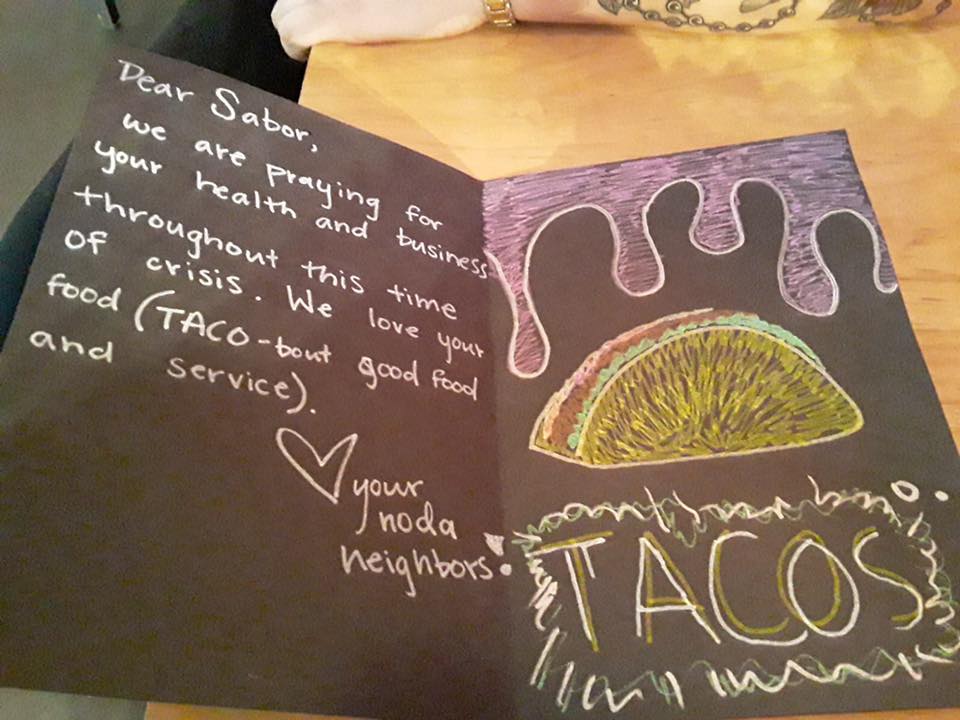 Dear Sabor,
we are praying for
your health and business
throughout this time
of crisis. We love your
food (TACO-bout good food
and service).
your
noda
neighbors
TACOS